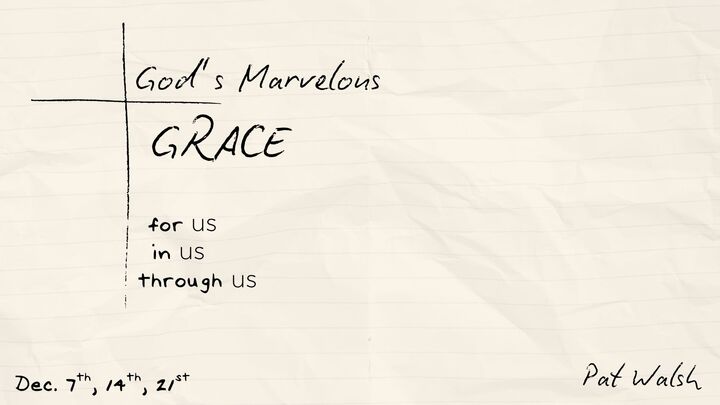 God's Marvelous
GRACE
for us
in us
through us
Dec. 7th, 14th, 21st
Pat Walsh